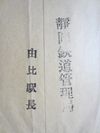 静岡鉄道管理
由比駅長